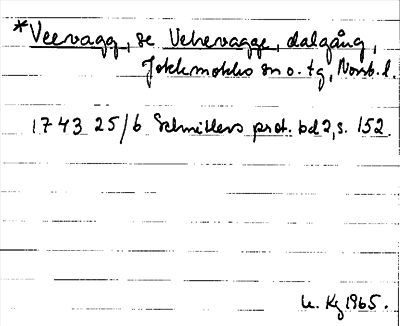 *Veevagg, se Vehevagge, dalgång,
Jokkmokks sn o. tg, Norrb. l.
1743 25/6 Schnitlers prot. bd 2, s. 152.
U. Kg 1965.